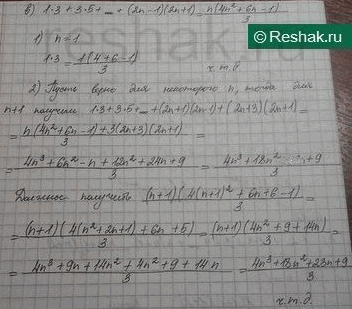 Reshak.ru
в) 1·3 + 3·5 + ... + (2n-1)(2n+1) = n(4n²+6n-1)/3
1) n=1
1·3 = 1(4+6-1)/3
ч.т.д.
2) Пусть верно для некоторого n, тогда для
n+1 получим 1·3+3·5+...+(2n+1)(2n-1)+(2n+3)(2n+1) =
= n(4n²+6n-1)+3(2n+3)(2n+1)/3 =
= 4n³+6n²-n+12n²+24n+9/3 = 4n³+18n² n+9/3
Должны получить (n+1)(4(n+1)²+6n+6-1)/3 =
= (n+1)(4(n²+2n+1)+6n+5)/3 = (n+1)(4n²+9+14n)/3 =
= 4n³+9n+14n²+4n²+9+14n/3 = 4n³+18n²+23n+9/3
ч.т.д.